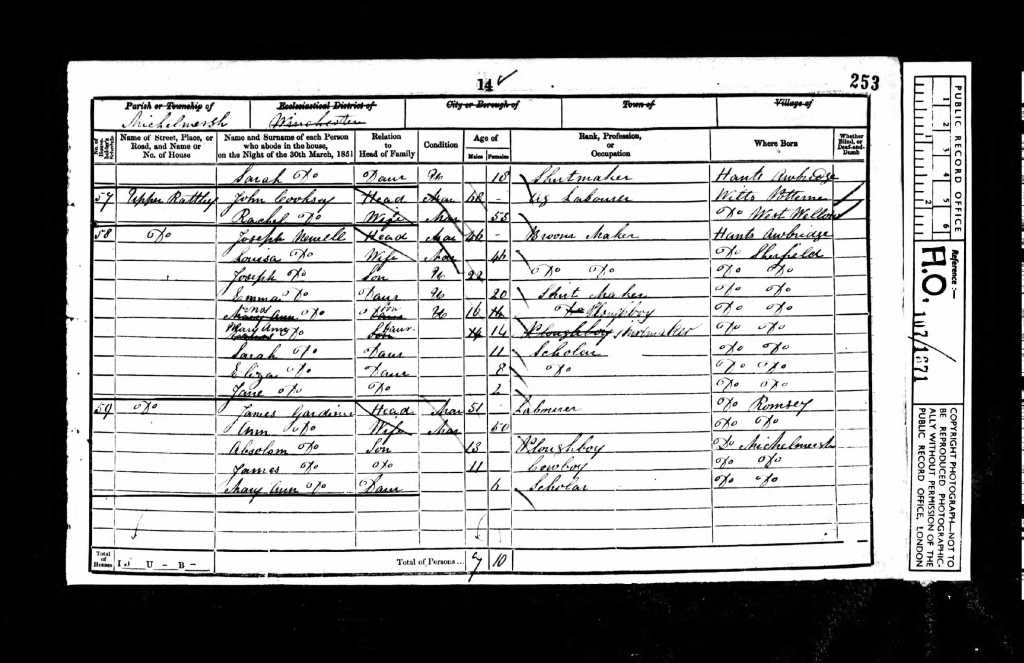 14
253
Parish or Township of
Ecclesiastical District of
City or Borough of
Town of
Village of
Michelmersh
Winchester
No. of Householder's Schedule
Name of Street, Place, or Road, and Name or No. of House
Name and Surname of each Person who abode in the house, on the Night of the 30th March, 1851
Relation to Head of Family
Condition
Age of
Males
Females
Rank, Profession, or Occupation
Where Born
Whether Blind, or Deaf-and-Dumb
Sarah Do Daur U 18 Shirtmaker Hants Awbridge
57 Upper Ratley John Cooksey Head Mar 68 - Labourer Wilts Potterne
Rachel Do Wife Mar 55 Do West Wellow
58 Do Joseph Newell Head Mar 46 - Broom Maker Hants Awbridge
Louisa Do Wife Mar 46 Do Sherfield
Joseph Do Son U 22 Do Do Do Do
Emma Do Daur U 20 Shirt Maker Do Do
Mary Ann Do U 16 Ploughboy Do Do
Mary Ann Do Son Daur 14 14 Ploughboy Do Do
Sarah Do Daur 11 Scholar Do Do
Eliza Do Daur 8 Do Do Do
Jane Do Do 2 Do Do
59 Do James Gardiner Head Mar 51 - Labourer Do Romsey
Ann Do Wife Mar 50 Do Do
Absolom Do Son 13 Ploughboy Do Michelmersh
James Do Do 11 Cowboy Do Do
Mary Ann Do Daur 6 Scholar Do Do
Total of Houses
I U - B -
Total of Persons...
7 10
PUBLIC RECORD OFFICE
1 2 3 4 5 6
1 2
Reference:-
H.O. 107/1671
COPYRIGHT PHOTOGRAPH—NOT TO BE REPRODUCED PHOTOGRAPHICALLY WITHOUT PERMISSION OF THE PUBLIC RECORD OFFICE, LONDON